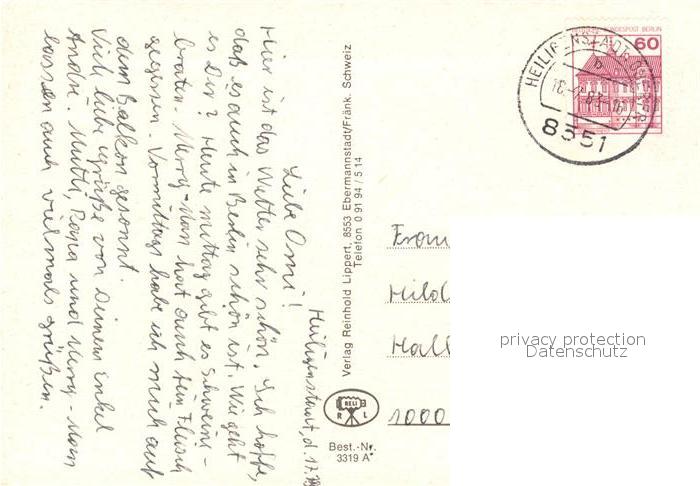 Heiligenstadt, d. 17.
Liebe Omi!
Hier ist das Wetter sehr schön. Ich hoffe,
daß es auch in Berlin schön ist. Wie geht
es Dir? Heute mittag gibt es Schweine-
braten. Merry-Mon hat auch sein Fleisch
gegessen. Vormittags habe ich mich auf
dem Balkon gesonnt.
Viele liebe Grüße von Deinem Enkel
André. Mutti, Papa und Merry-Mon
lassen auch vielmals grüßen.
Verlag Reinhold Lippert, 8553 Ebermannstadt/Fränk. Schweiz
Telefon 0 91 94 / 5 14
RELI
R L
Best.-Nr.
3319 A
DEUTSCHE BUNDESPOST BERLIN
60
HEILIGENSTADT
b
8551
Frau
Hild
Hall
1000
privacy protection
Datenschutz